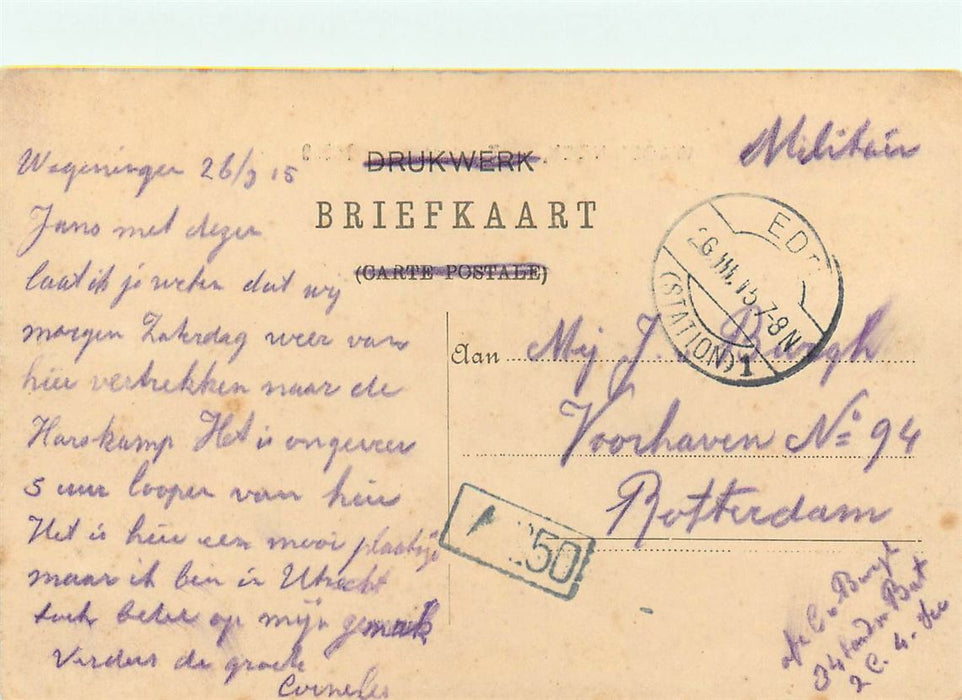 Wageningen 26/3 15
Jans met dezen
laat ik je weten dat wij
morgen Zaterdag weer van
hier vertrekken naar de
Harskamp Het is ongeveer
5 uur loopen van hier
Het is hier een mooi plaatsje
maar ik ben in Utrecht
toch beter op mijn gemak
Verders de groete
Cornelis
DRUKWERK
BRIEFKAART
(CARTE POSTALE)
Militair
EDE
26.III.15 7-8N
(STATION) 1
Aan Mej J. v. Burgh
Voorhaven No 94
Rotterdam
50
afz C v Burgh
34 Landw Bat
2 C. 4.